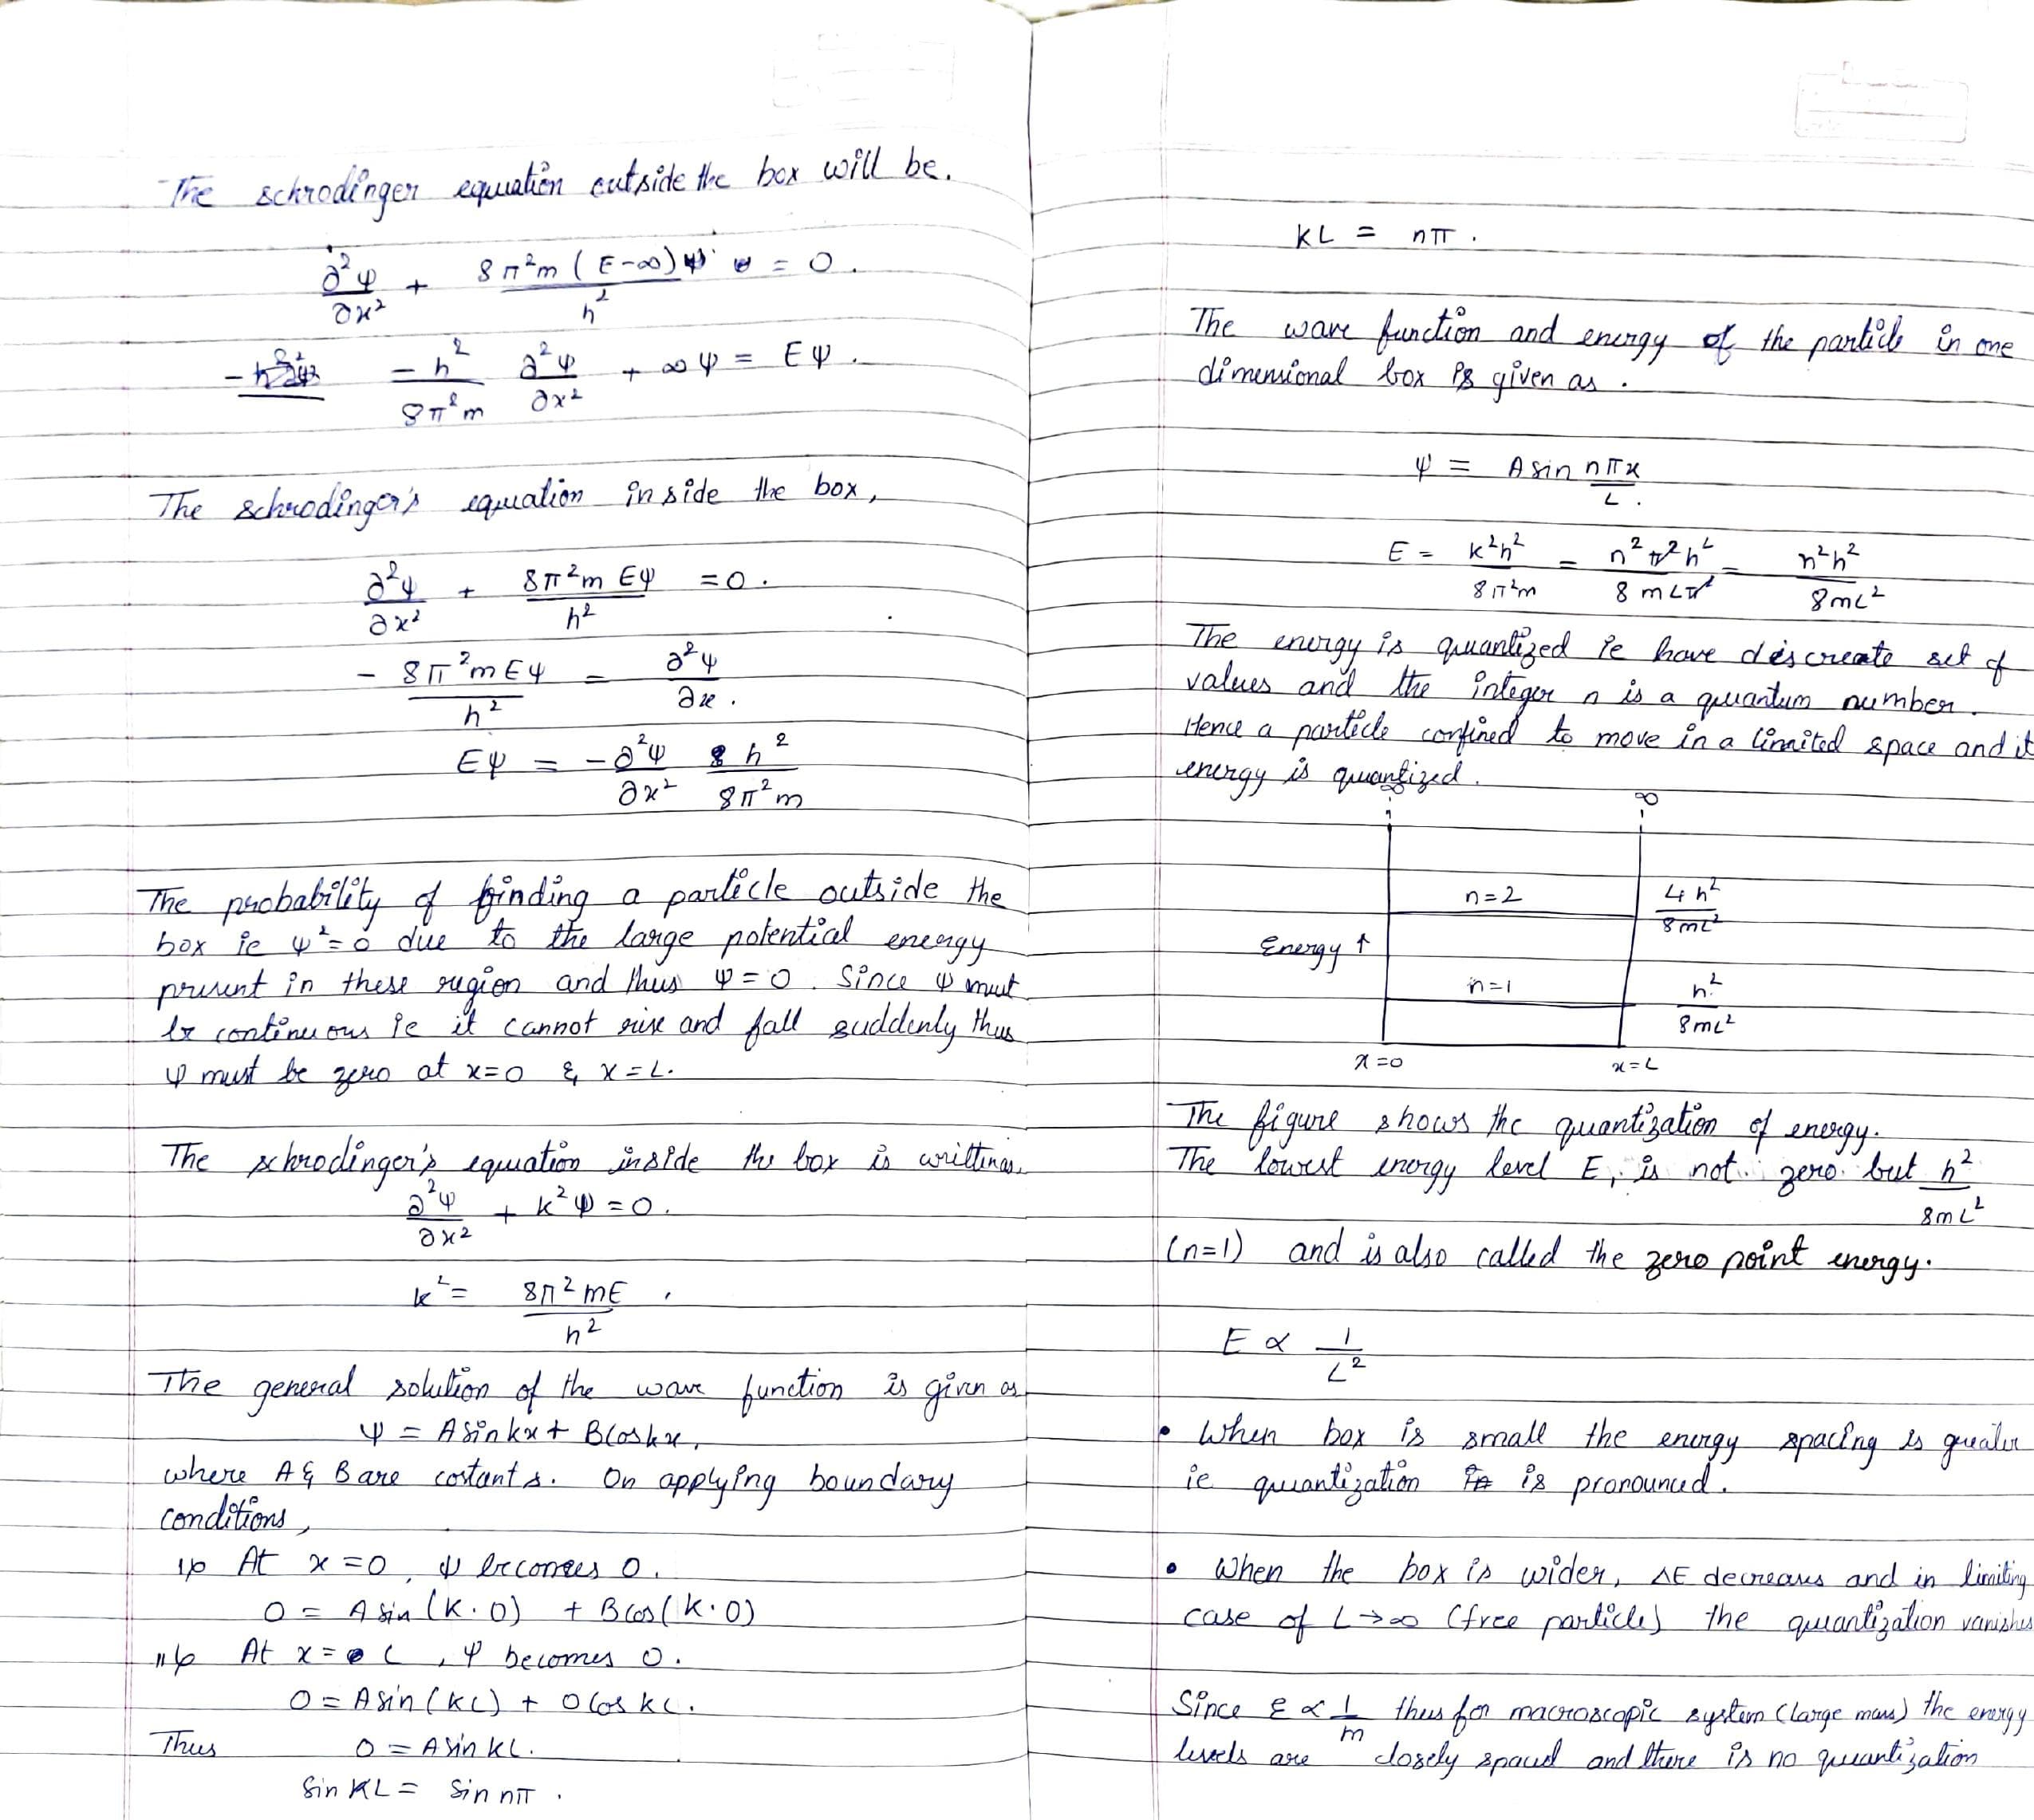 The schrodinger equation outside the box will be.
∂²ψ/∂x² + 8π²m(E-∞)ψ/h² = 0.
-h²/8π²m ∂²ψ/∂x² + ∞ψ = Eψ.
The schrodinger's equation inside the box,
∂²ψ/∂x² + 8π²mEψ/h² = 0.
- 8π²mEψ/h² = ∂²ψ/∂x.
Eψ = -∂²ψ/∂x² h²/8π²m
The probability of finding a particle outside the
box ie ψ²=0 due to the large potential energy
present in these region and thus ψ=0. Since ψ must
be continuous ie it cannot rise and fall suddenly thus
ψ must be zero at x=0 & x=L.
The schrodinger's equation inside the box is written as,
∂²ψ/∂x² + k²ψ=0.
k² = 8π²mE/h².
The general solution of the wave function is given as
ψ = A sin kx + B cos kx,
where A & B are costants. On applying boundary
conditions,
i) At x=0, ψ becomes 0.
0 = A sin (k.0) + B cos (k.0)
ii) At x = L, ψ becomes 0.
0 = A sin (KL) + 0 cos KL.
Thus 0 = A sin KL.
Sin KL = Sin nπ.
KL = nπ.
The wave function and energy of the particle in one
dimensional box is given as.
ψ = A sin nπx/L.
E = k²h²/8π²m = n²π²h²/8mLπ² = n²h²/8mL²
The energy is quantized ie have descreate set of
values and the integer n is a quantum number.
Hence a particle confined to move in a limited space and it
energy is quantized.
∞ ∞
n=2 4h²/8mL²
Energy ↑
n=1 h²/8mL²
x=0 x=L
The figure shows the quantization of energy.
The lowest energy level E₁ is not zero but h²/8mL²
(n=1) and is also called the zero point energy.
E ∝ 1/L²
• When box is small the energy spacing is greater
ie quantization is pronounced.
• When the box is wider, ΔE decreases and in limiting
case of L→∞ (free particle) the quantization vanishes
Since E ∝ 1/m thus for macroscopic system (large mass) the energy
levels are closely spaced and there is no quantization